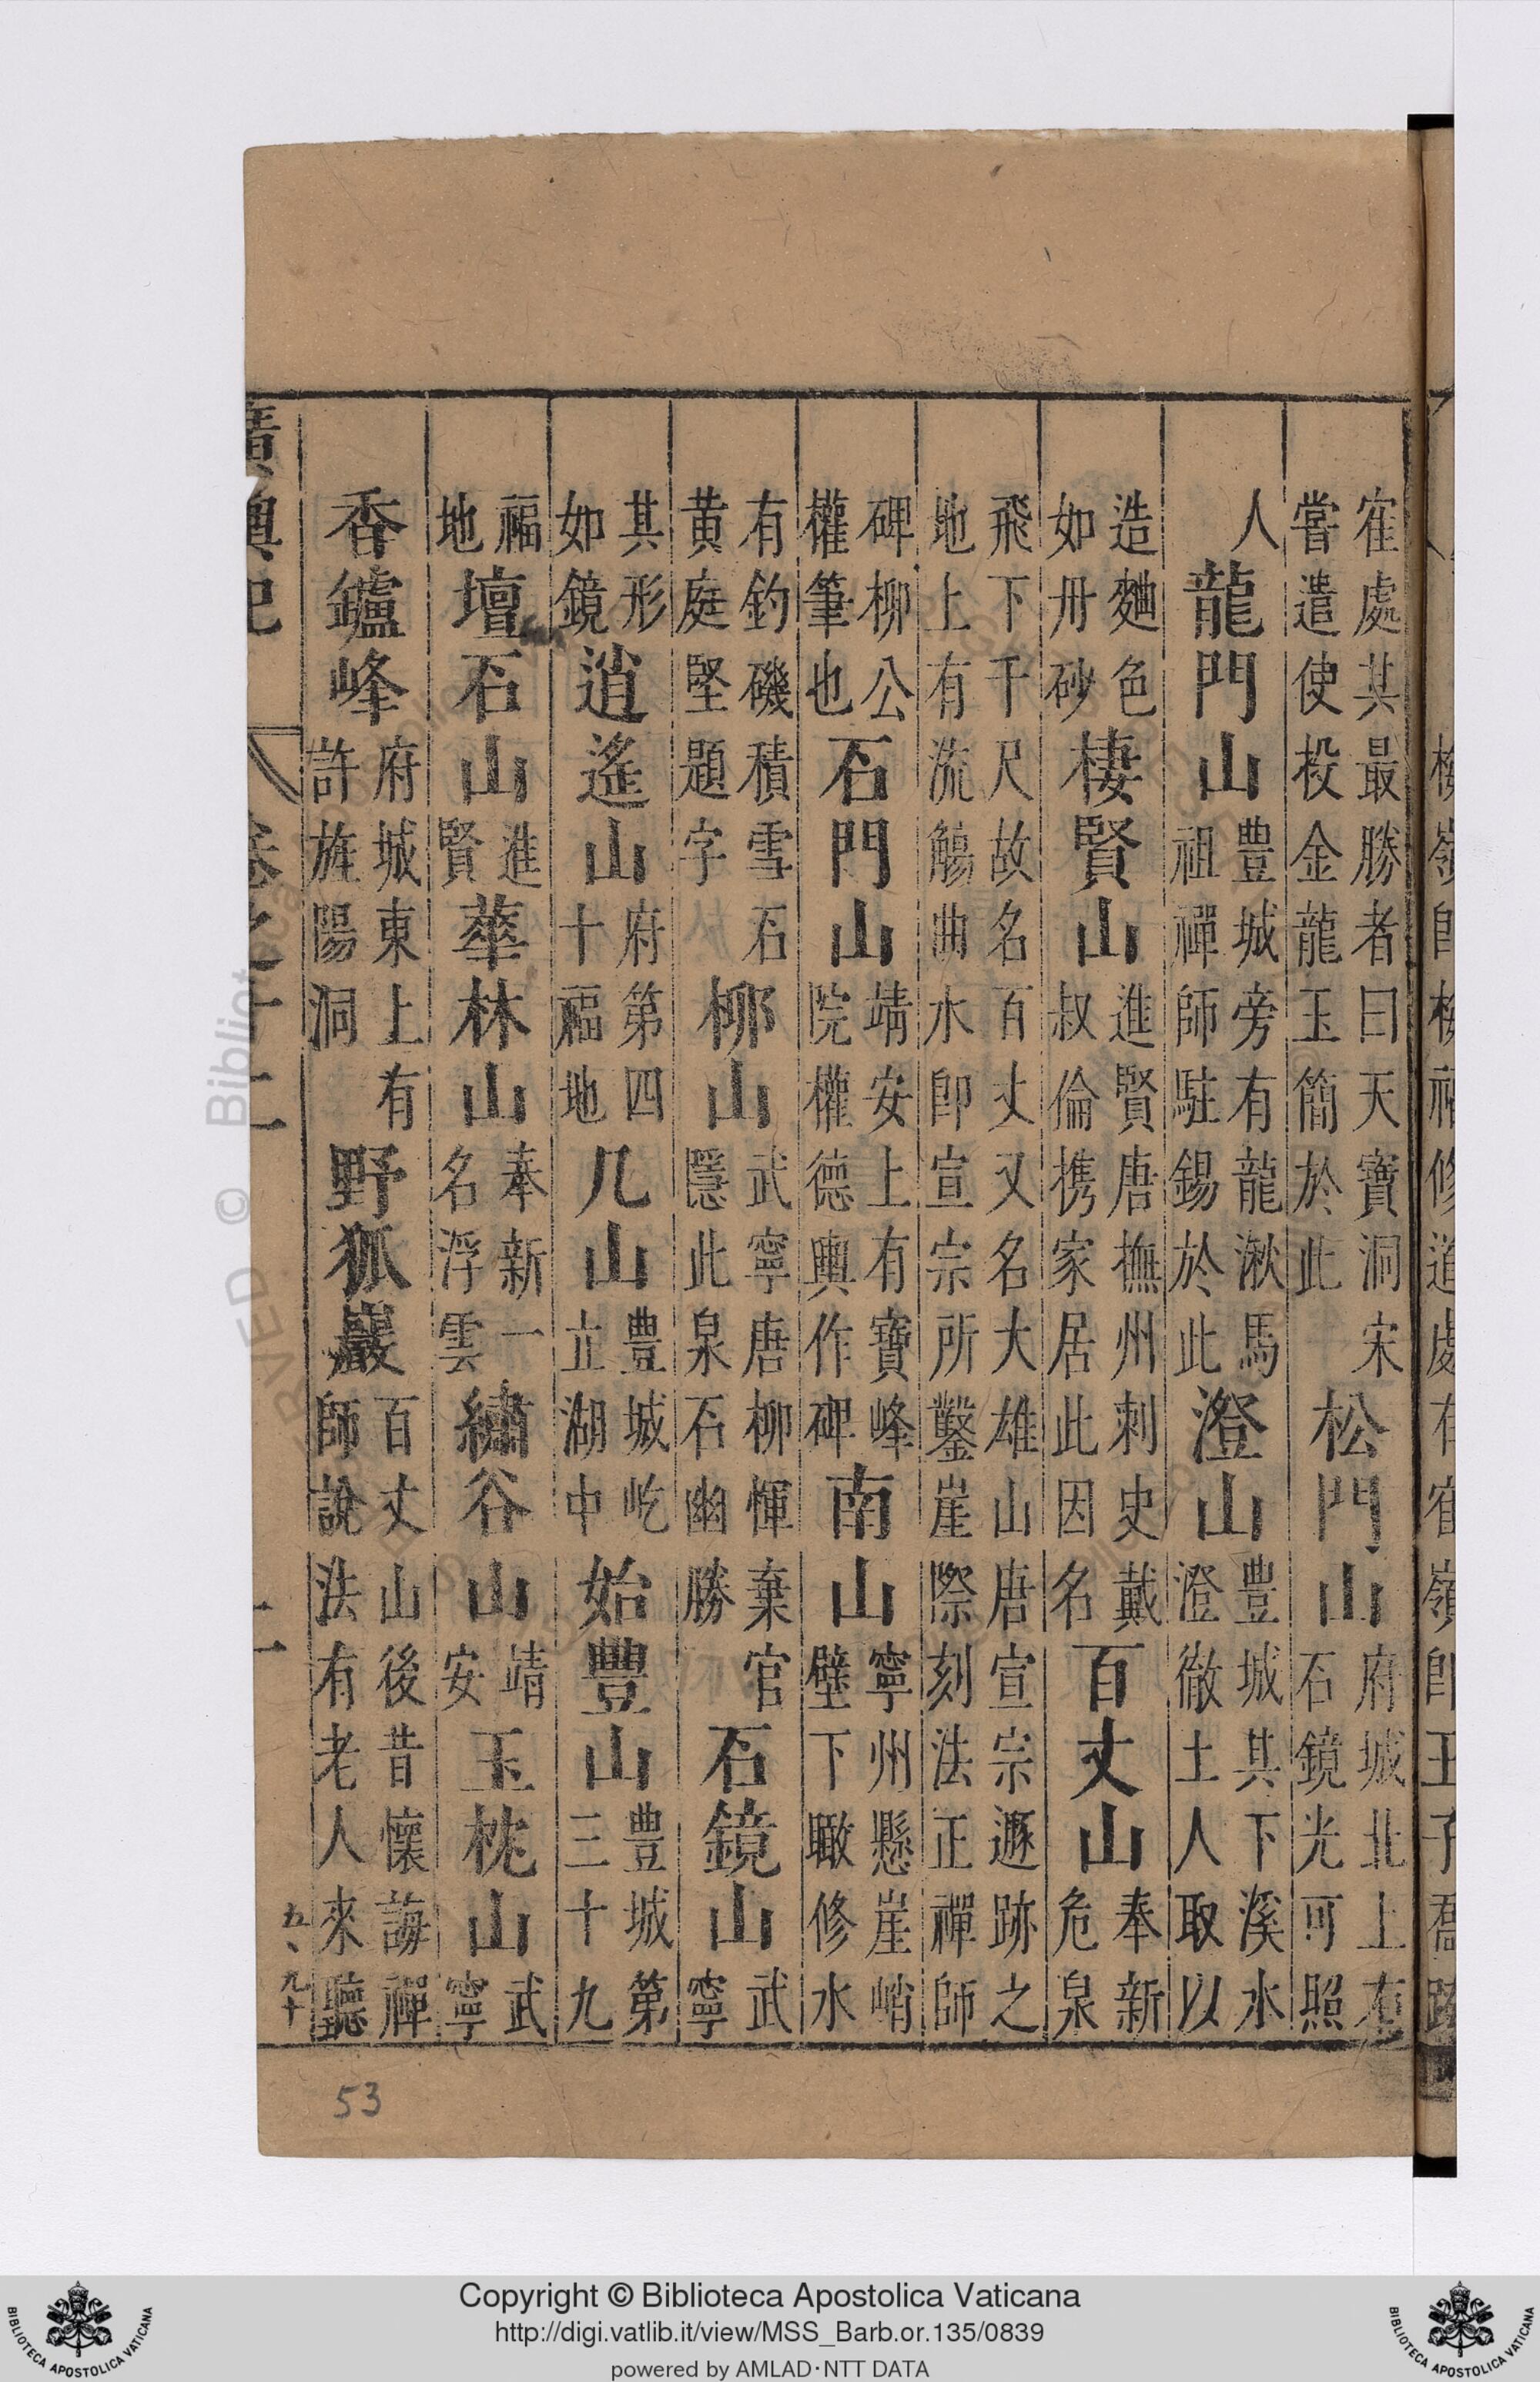 寉處其最勝者曰天寶洞宋嘗遣使投金龍玉簡於此松門山府城北上有石鏡光可照
人龍門山豊城旁有龍湫馬祖禪師駐錫於此澄山豊城其下溪水澄徹土人取以
造麯色如丹砂棲賢山進賢唐撫州刺史戴叔倫携家居此因名百丈山奉新危泉
飛下千尺故名百丈又名大雄山唐宣宗遯跡之地上有流觴曲水卽宣宗所鑿崖際刻法正禪師
碑柳公權筆也石門山靖安上有寶峰院權德輿作碑南山寧州懸崖峭壁下瞰修水
有釣磯積雪石黄庭堅題字柳山武寧唐柳惲棄官隱此泉石幽勝石鏡山武寧
其形如鏡逍遙山府第四十福地几山豊城屹立湖中始豐山豊城第三十九
福地壇石山進賢華林山奉新一名浮雲繡谷山靖安玉枕山武寧
香鑪峰府城東上有許旌陽洞野狐巖百丈山後昔懷誨禪師說法有老人來聽
廣輿記 卷之十二 二
五、九十
53
Copyright © Biblioteca Apostolica Vaticana
http://digi.vatlib.it/view/MSS_Barb.or.135/0839
powered by AMLAD·NTT DATA
BIBLIOTECA APOSTOLICA VATICANA
BIBLIOTECA APOSTOLICA VATICANA